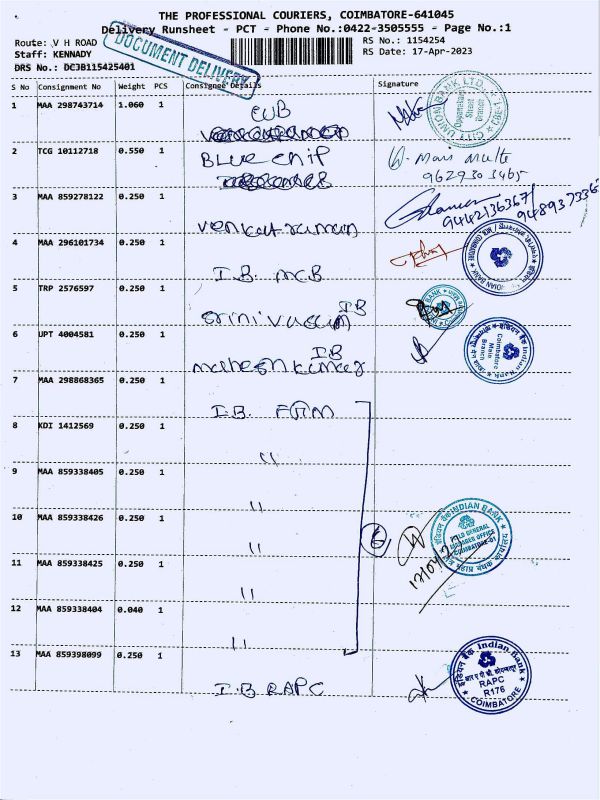 THE PROFESSIONAL COURIERS, COIMBATORE-641045
Delivery Runsheet - PCT - Phone No.:0422-3505555 - Page No.:1
Route: V H ROAD
RS No.: 1154254
Staff: KENNADY
RS Date: 17-Apr-2023
DRS No.: DCJB115425401
DOCUMENT DELIVERY
S No Consignment No Weight PCS Consignee Details Signature
1 MAA 298743714 1.060 1
CUB
CITY UNION BANK LTD.
2 TCG 10112718 0.550 1
Blue chip
9629303465
3 MAA 859278122 0.250 1
Venkatraman
9442136367/
9489373366
4 MAA 296101734 0.250 1
I.B. MCB
INDIAN BANK
5 TRP 2576597 0.250 1
Srinivasan IB
BANK
6 UPT 4004581 0.250 1
Maheshkumar IB
इंडियन बैंक Indian Bank
Coimbatore
Main
Branch
7 MAA 298868365 0.250 1
I.B. FGM
8 KDI 1412569 0.250 1
"
9 MAA 859338405 0.250 1
"
10 MAA 859338426 0.250 1
"
6
इंडियन बैंक INDIAN BANK
FIELD GENERAL
MANAGER OFFICE
COIMBATORE-01
17/04/23
11 MAA 859338425 0.250 1
"
12 MAA 859338404 0.040 1
"
13 MAA 859398099 0.250 1
I.B RAPC
इंडियन बैंक Indian Bank
RAPC
R176
COIMBATORE